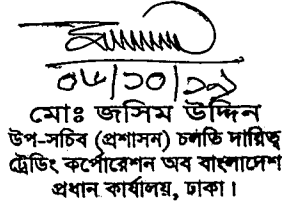 ০৮/১০/১৯
মোঃ জসিম উদ্দিন
উপ-সচিব (প্রশাসন) চলতি দায়িত্ব
ট্রেডিং কর্পোরেশন অব বাংলাদেশ
প্রধান কার্যালয়, ঢাকা।